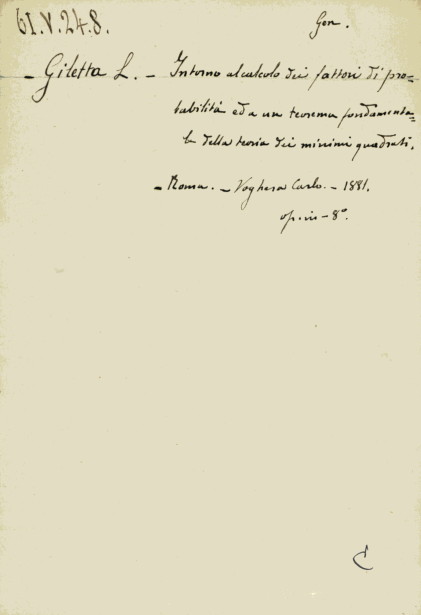 61.V.24.8.
Gen.
- Giletta L. - Intorno al calcolo dei fattori di pro=
babilità ed a un teorema fondamenta=
le della teoria dei minimi quadrati.
- Roma. - Voghera Carlo. - 1881.
op. in - 8º.
C